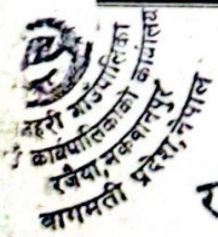 गाउँपालिका
कार्यपालिकाको कार्यालय
रजैया, मकवानपुर
बागमती प्रदेश, नेपाल